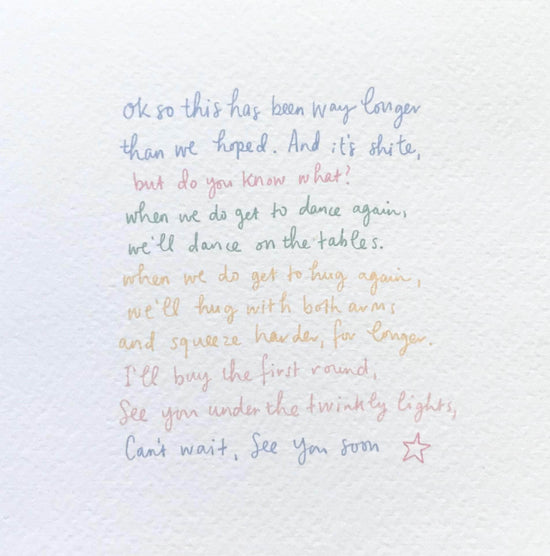 ok so this has been way longer
than we hoped. And it's shite,
but do you know what?
when we do get to dance again,
we'll dance on the tables.
when we do get to hug again,
we'll hug with both arms
and squeeze harder, for longer.
I'll buy the first round,
See you under the twinkly lights,
Can't wait, See you soon